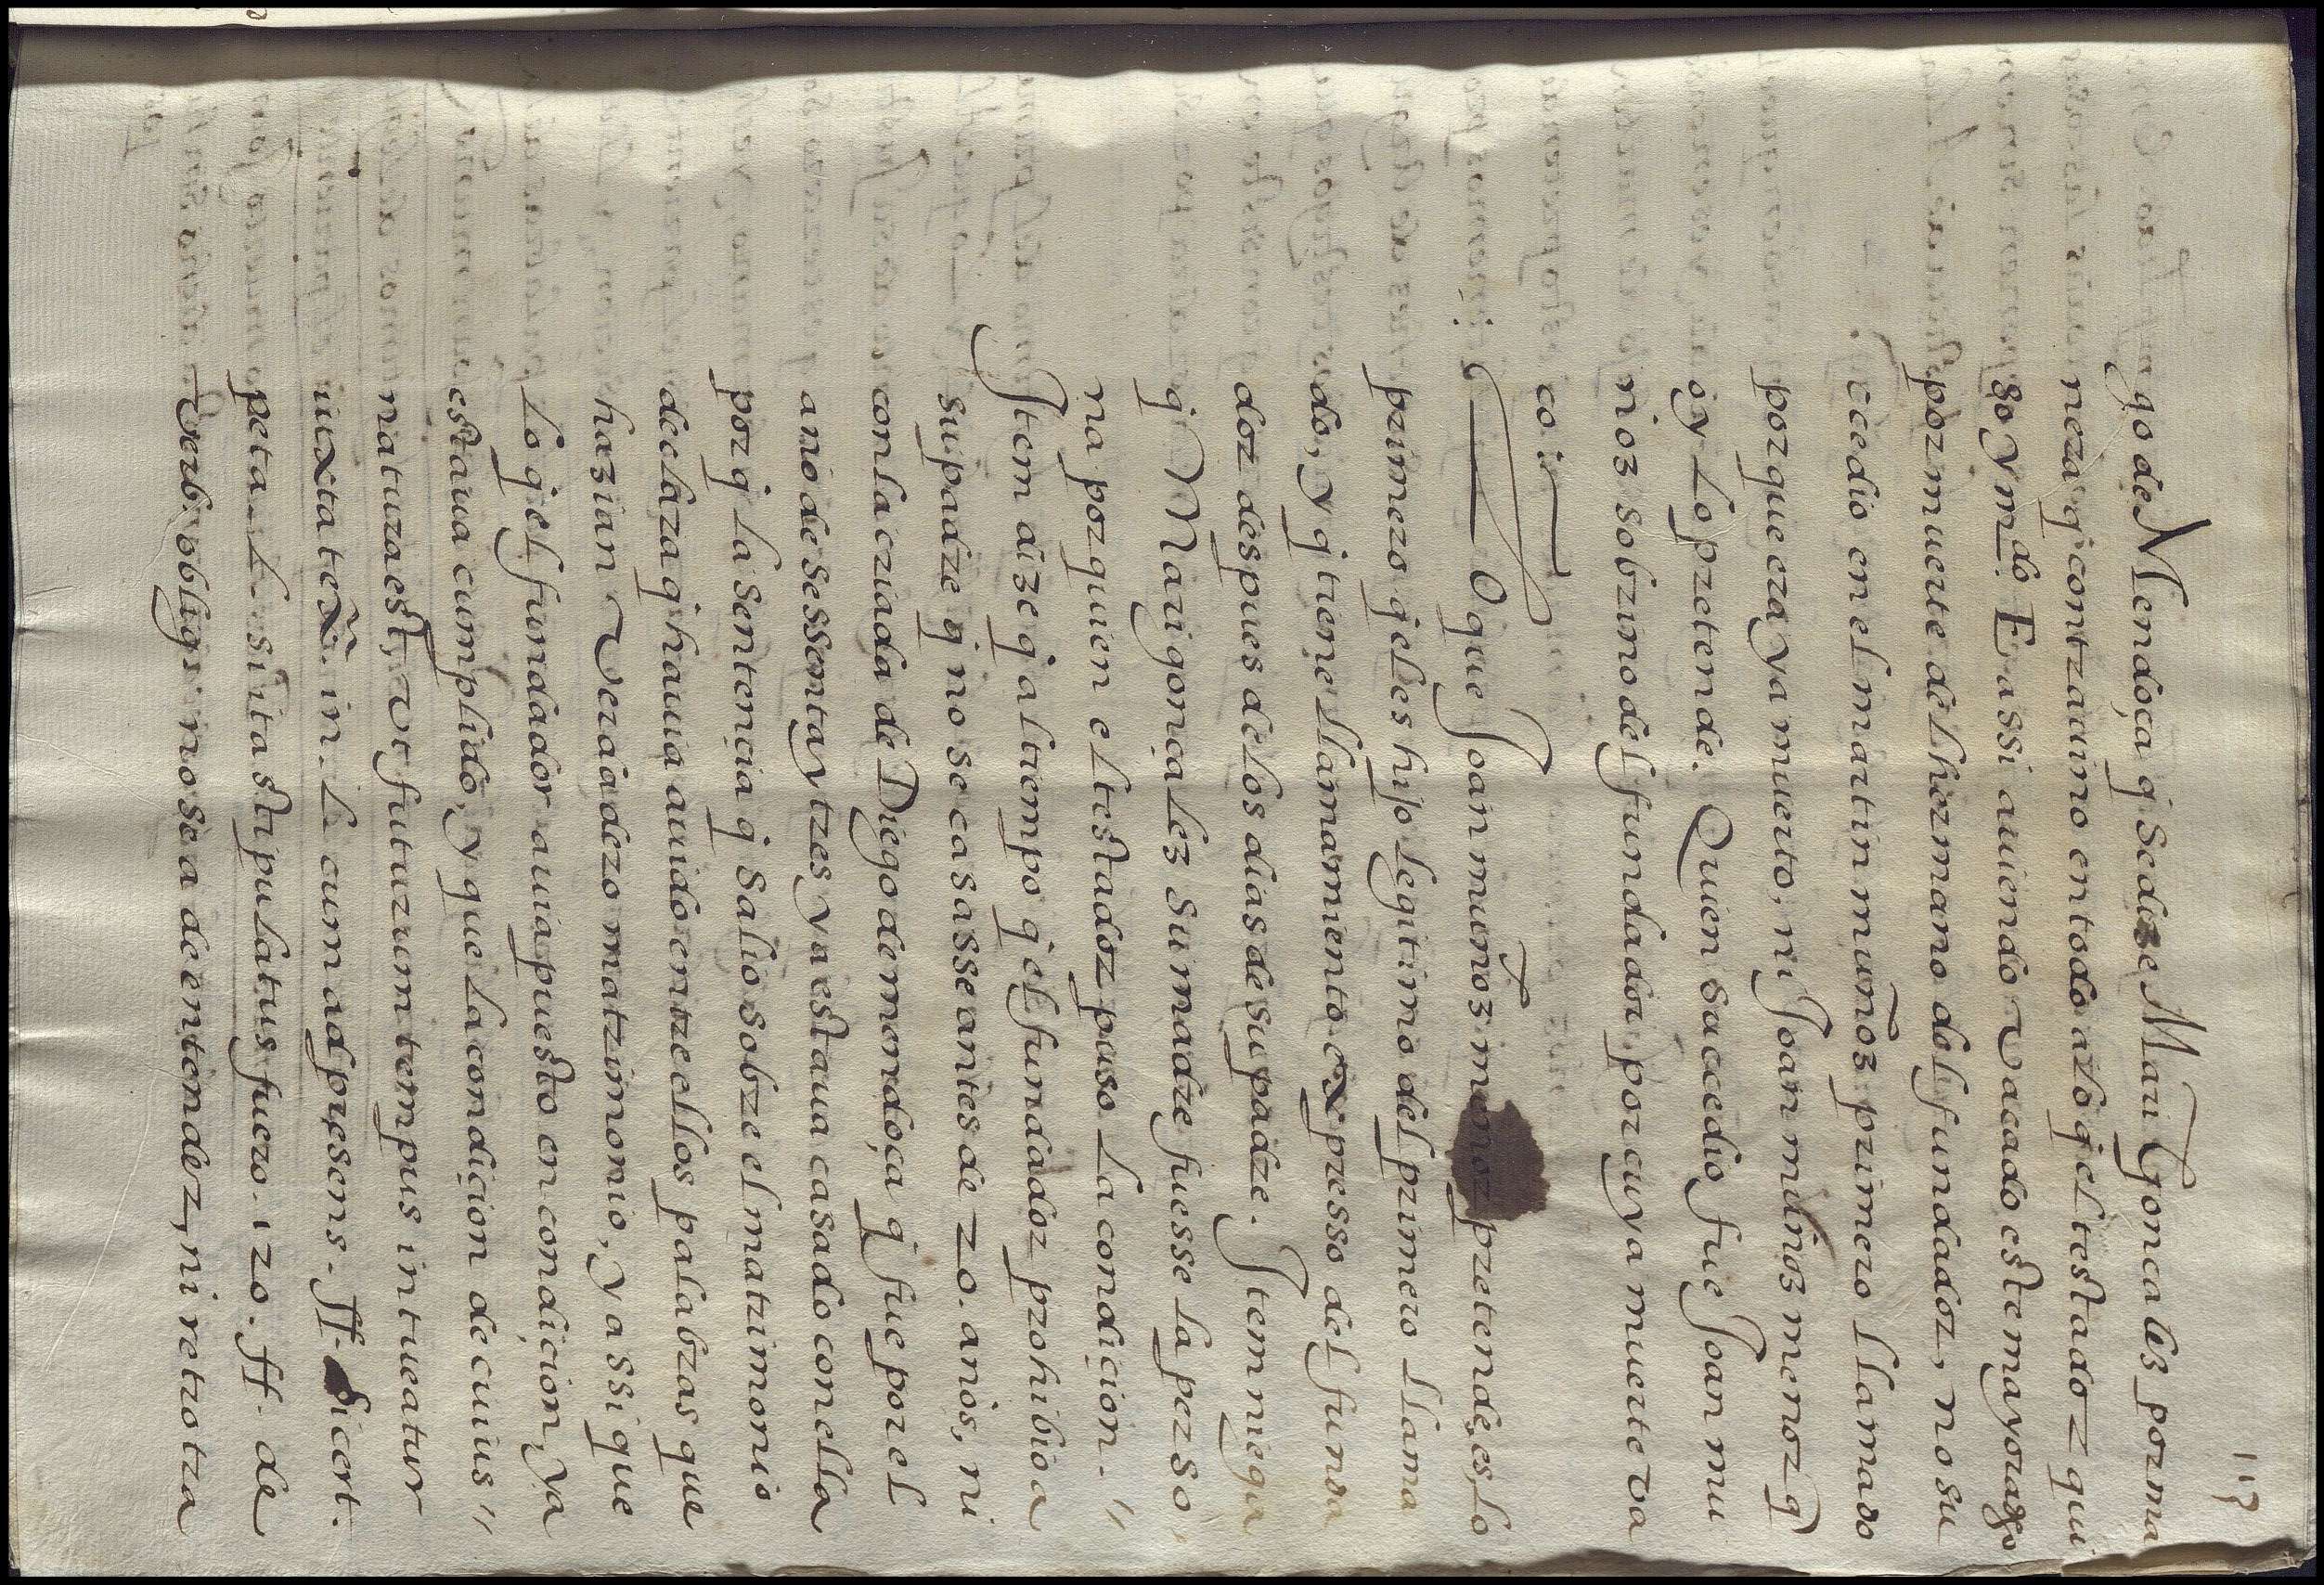 113
go de Mendoça q̃ se dize Mari Gonçales por ma
nera q̃ contrauino en todo a lo q̃ el testador qui
so y m.do E assi auiendo vacado este mayorazgo
por muerte del hermano del fundador, no su
cedio en el martin muñoz primero llamado
porque era ya muerto, ni Joan muñoz menor q̃
oy lo pretende. Quien sucedio fue Joan mu
ñoz sobrino del fundador por cuya muerte va
co :
Lo que Joan muñoz menor pretende, es lo
primero q̃ el es hijo legitimo del primero llama
do, y q̃ tiene llamamiento expresso del funda
dor despues de los dias de su padre. Item niega
q̃ Mari gonçalez su madre fuesse la perso
na por quien el testador puso la condiçion. //
Item dize q̃ al tiempo q̃ el fundador prohibio a
su padre q̃ no se casasse antes de 20. años, ni
con la criada de Diego de mendoça q̃ fue por el
año de sessenta y tres ya estaua casado con ella
por q̃ la sentençia q̃ salio sobre el matrimonio
declara q̃ hauia auido entre ellos palabras que
hazian verdadero matrimonio, y assi que
lo q̃ el fundador auia puesto en condiçion, ya
estaua cumplido, y que la condiçion de cuius //
natura est, vt futurum tempus intueatur
iuxta tex̃. in. l. cum ad præsens. ff. si cert.
peta. l. si ita stipulatus fuero. 120. ff. de
verb. oblig. no se a de entender, ni retrotra